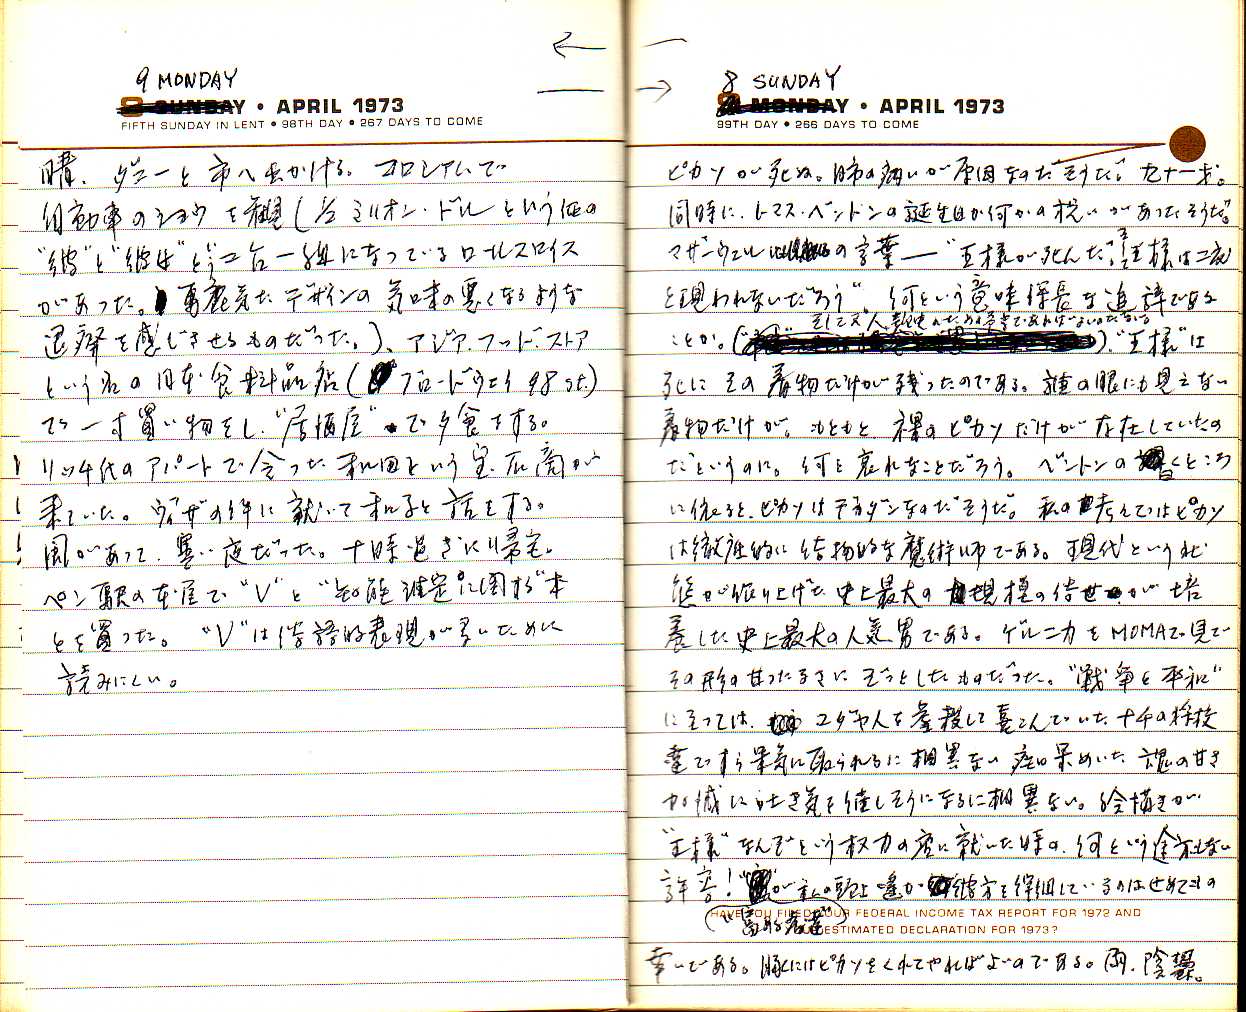 9 MONDAY
8 SUNDAY • APRIL 1973
FIFTH SUNDAY IN LENT • 98TH DAY • 267 DAYS TO COME
晴、ヂューと市へ出かける。コロシアムで
自動車のショウを観(1/2ミリオン・ドルという値の
"彼"と"彼女"という二台一組になっているロールスロイス
があった。デザインの気味の悪くなるような
退廃を感じさせるものだった。)、アジア・フッド・ストア
という名の日本食料品店(ブロードウェイ 98 st.)
で一寸買い物をし、"居酒屋"で夕食をする。
リッチ代のアパートで会った和田という宝石商が
来ていた。ヴィザの件に就いて和子と話をする。
風があって、寒い夜だった。十時過ぎに帰宅。
ペン駅の本屋で"V"と"知能推定に関する"本
とを買った。"V"は俗語的表現が多いために
読みにくい。
8 SUNDAY
MONDAY • APRIL 1973
99TH DAY • 266 DAYS TO COME
ピカソが死ぬ。肺の病いが原因なのだそうだ。九十一才。
同時に、トマス・ベントンの誕生日か何かの祝いがあったそうだ。
マザンウェルの言葉—"王様が死んだ。王様は二度
と現われないだろう" 何という意味深長な追誄である
ことか。("王様"は
死にその着物だけが残ったのである。誰の眼にも見えない
着物だけが。もともと、裸のピカソだけが存在していたの
だというのに。何と哀れなことだろう。ベントンの書くところ
に依ると、ピカソはデカダンなのだそうだ。私の考えではピカソ
は徹底的に俗物的な魔術師である。現代という状
態が作り上げた史上最大の規模の俗世が培
養した史上最大の人気男である。ゲルニカをMOMAで見て
その形の甘ったるさにぞっとしたものだった。"戦争と平和"
に至っては、ユダヤ人を虐殺して喜こんでいたナチの将校
達ですら呆気に取られるに相異ない 魂の甘さ
加減に吐き気を催しそうになるに相異ない。絵描きが
"王様"なんぞという権力の座に就いた時の、何という途方もない
許容! が私の頭上遙か彼方を徘徊しているのはせめてもの
HAVE YOU FILED YOUR FEDERAL INCOME TAX REPORT FOR 1972 AND
ESTIMATED DECLARATION FOR 1973?
幸いである。豚にはピカソをくれてやればよいのである。雨、陰鬱。